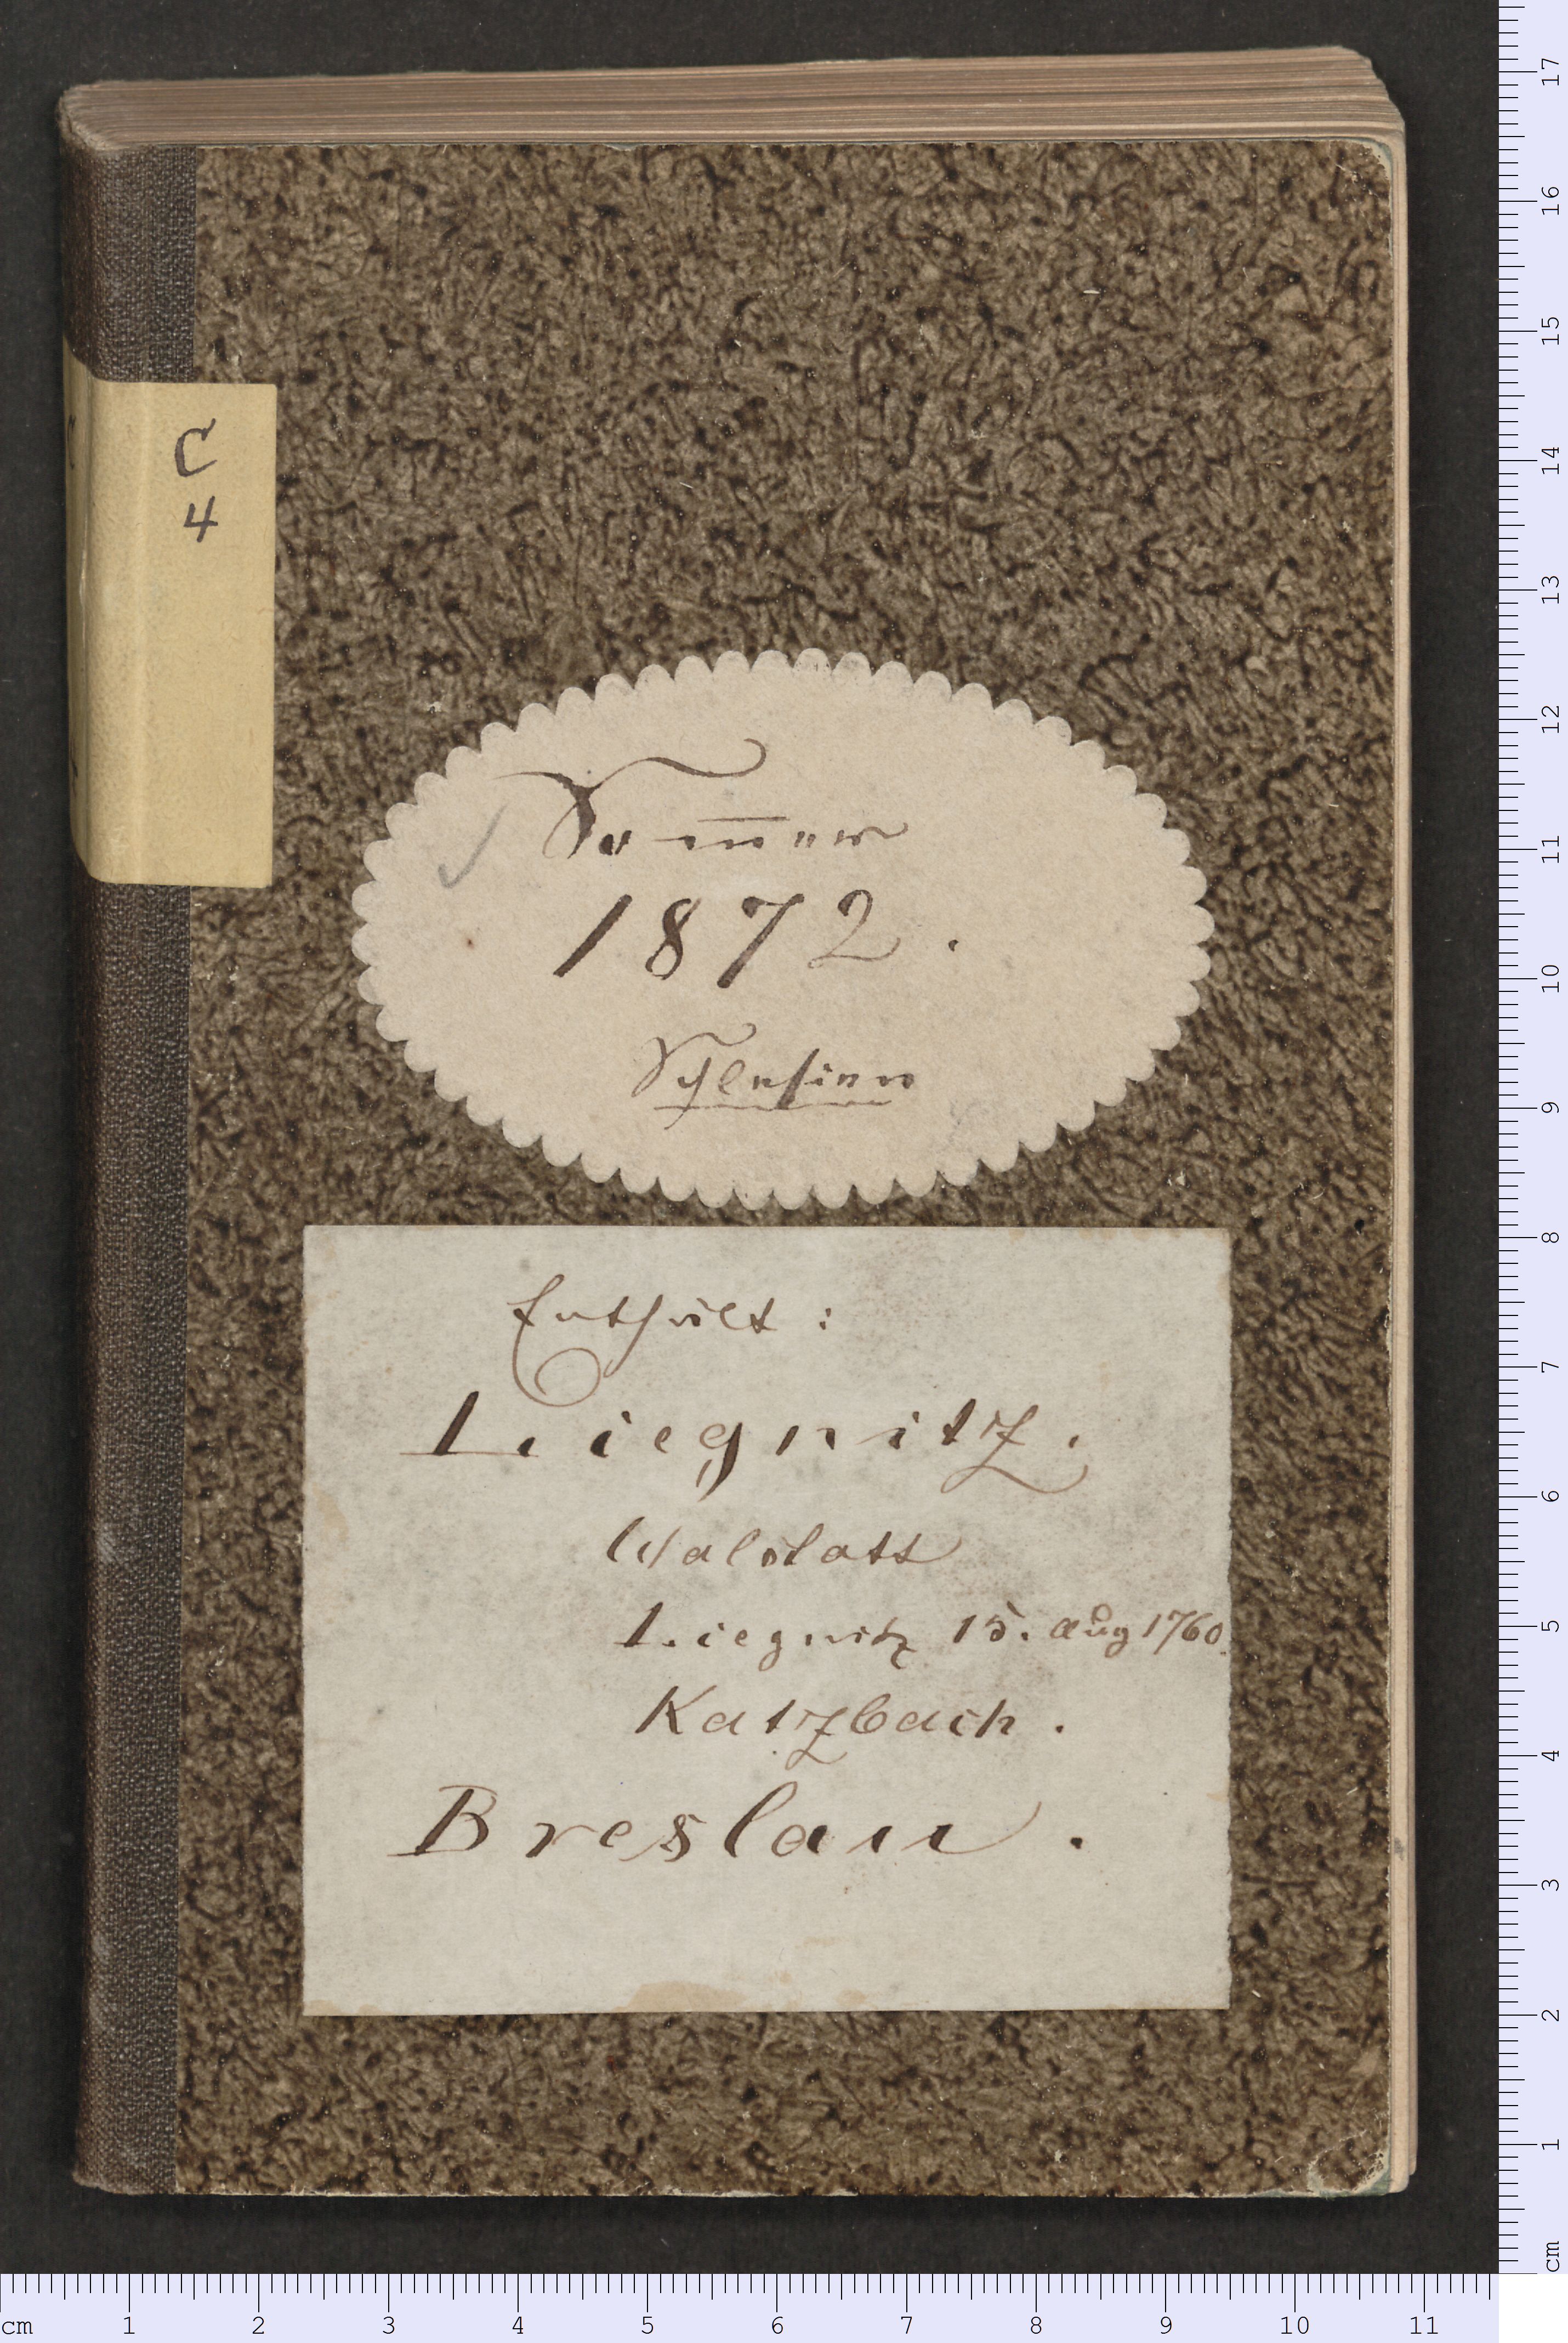 C
4
Som̅er
1872.
Schlesien
Enthält:
Liegnitz.
Walstatt
Liegnitz 15. Aug 1760.
Katzbach.
Breslau.
17
16
15
14
13
12
11
10
9
8
7
6
5
4
3
2
1
cm
cm 1 2 3 4 5 6 7 8 9 10 11